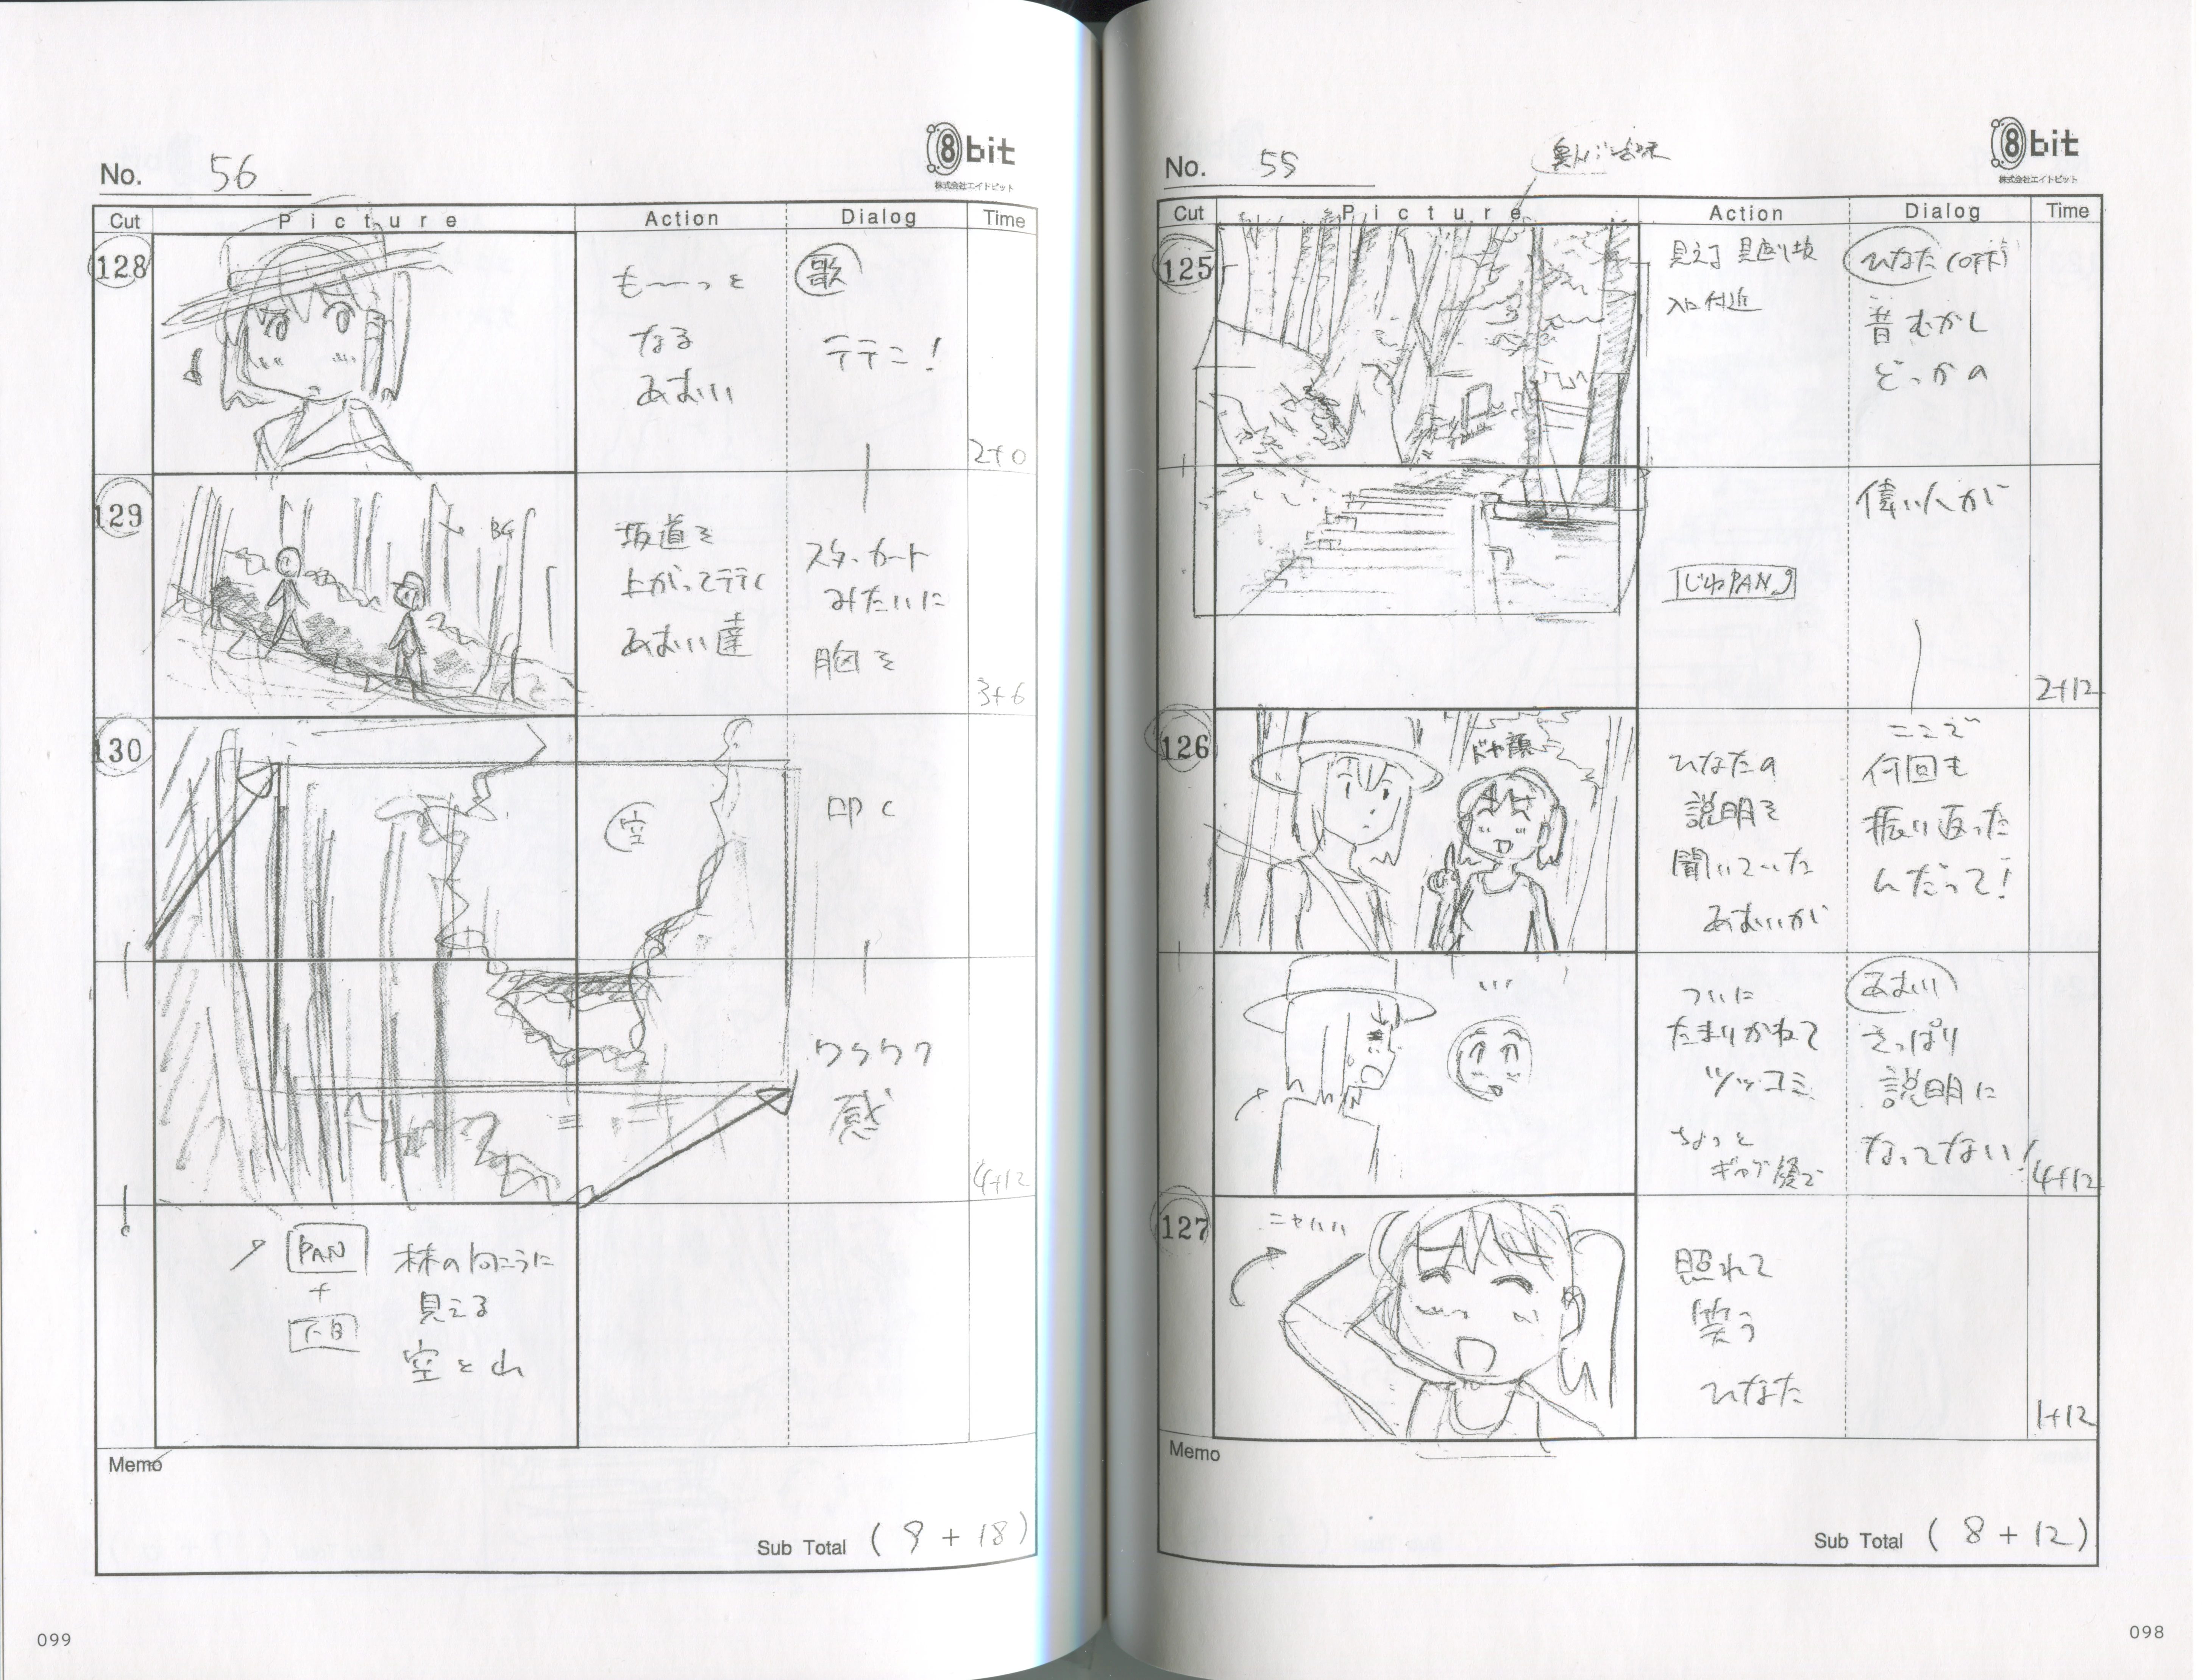 No. 55
8bit
株式会社エイトビット
Cut Picture Action Dialog Time
125
見返り坂
入口付近
ひなた(OFF)
昔むかし
どっかの
偉い人が
じわPAN
2+12
126
ドヤ顔
ひなたの
説明を
聞いていた
あおいが
ここで
何回も
振り返った
んだって!
ついに
たまりかねて
ツッコミ
ちょっと
ギャグ顔で
あおい
さっぱり
説明に
なってない!
4+12
127
ニャハハ
照れて
笑う
ひなた
1+12
Memo
Sub Total (8+12)
098
No. 56
8bit
株式会社エイトビット
Cut Picture Action Dialog Time
128
も〜〜っと
なる
あおい
歌
テテこ!
2+0
129
BG
坂道を
上がってテテく
あおい達
スタッカート
みたいに
胸を
3+6
130
空
叩く
ワクワク
感
4+12
PAN
+
林の向こうに
見える
空と山
Memo
Sub Total (9+18)
099